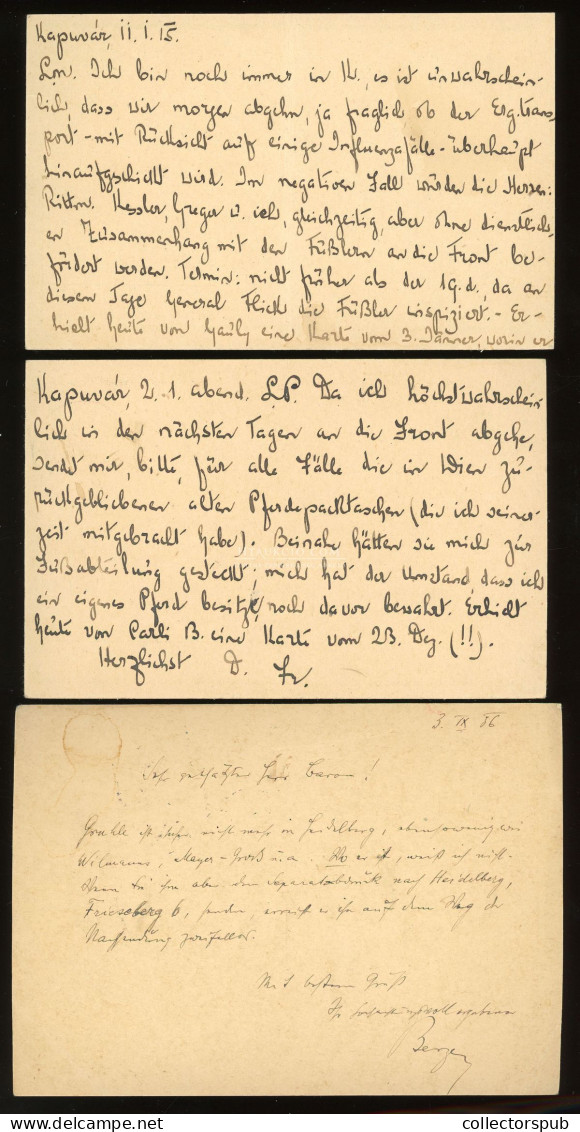 Kapuvár, 11. I. 15.
Lm. Ich bin noch immer in K., es ist unwahrschein-
lich, dass wir morgen abgehn, ja fraglich ob der Erg.trans-
port - mit Rücksicht auf einige Influenzafälle - überhaupt
hinaufgschickt wird. Im negativen Fall würden die Herren:
Rittm. Kessler, Greger u. ich, gleichzeitig, aber ohne dienstlich-
en Zusammenhang mit den Füßlern an die Front be-
fördert werden. Termin: nicht früher als der 19. d., da an
diesem Tage General Flick die Füßler inspiziert. - Er-
hielt heute von eine Karte vom 3. Jänner, worin er
Kapuvár, 2. 1. abend. L.P. Da ich höchstwahrschein
lich in den nächsten Tagen an die Front abgehe,
sendet mir, bitte, für alle Fälle die in Wien zu-
rückgebliebenen alten Pferdepacktaschen (die ich seiner-
zeit mitgebracht habe). Beinahe hätten sie mich zur
Fußabteilung gesteckt; mich hat der Umstand, dass ich
ein eigenes Pferd besitze, noch davor bewahrt. Erhielt
heute von Carli B. eine Karte vom 23. Dez. (!!).
Herzlichst D. Fr.
3. IX
Sehr geehrter Herr Baron!
Gruhle ist nicht mehr in Heidelberg, ebensowenig wie
Wilmanns, Mayer-Groß u. a. Wo er ist, weiß ich nicht.
Wenn Sie ihm aber den Separatabdruck nach Heidelberg,
6, senden, erreicht er ihn auf dem Weg der
Nachsendung zweifellos.
Mit bestem Gruß
Ihr hochachtungsvoll ergebener
https://www.delcampe.net
collectorspub